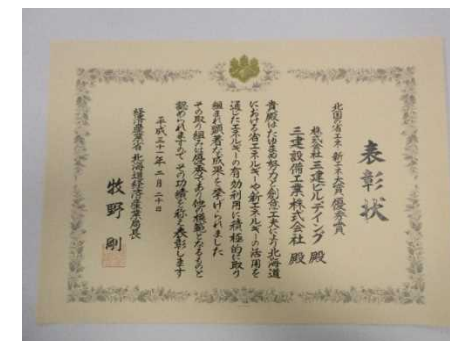 表彰状
北国の省エネ・新エネ大賞 優秀賞
株式会社三建ビルディング 殿
三建設備工業株式会社 殿
貴殿はたゆまぬ努力と創意工夫により北海道
における省エネルギーや新エネルギーの活用を
通じたエネルギーの有効利用に積極的に取り
組まれ顕著な成果を挙げられました
その取り組みは優秀であり他の模範となるものと
認められますので その功績を称え表彰します
平成三十一年二月二十日
経済産業省 北海道経済産業局長
牧野 剛